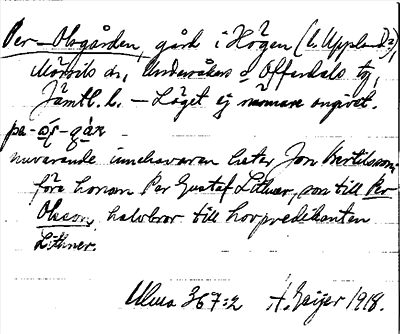 Per-Olsgården, gård i Högen (l. Uppland),
Mörsils sn, Undersåkers o Offerdals tg,
Jämtl. l. — Läget ej närmare angivet.
pa-
nuvarande innehavaren heter Jon Bertilsson,
före honom Per Gustaf Lithner, son till Per
Olsson, halvbror till hovpredikanten
Lithner.
Ulma 367:2 H. Geijer 1918.